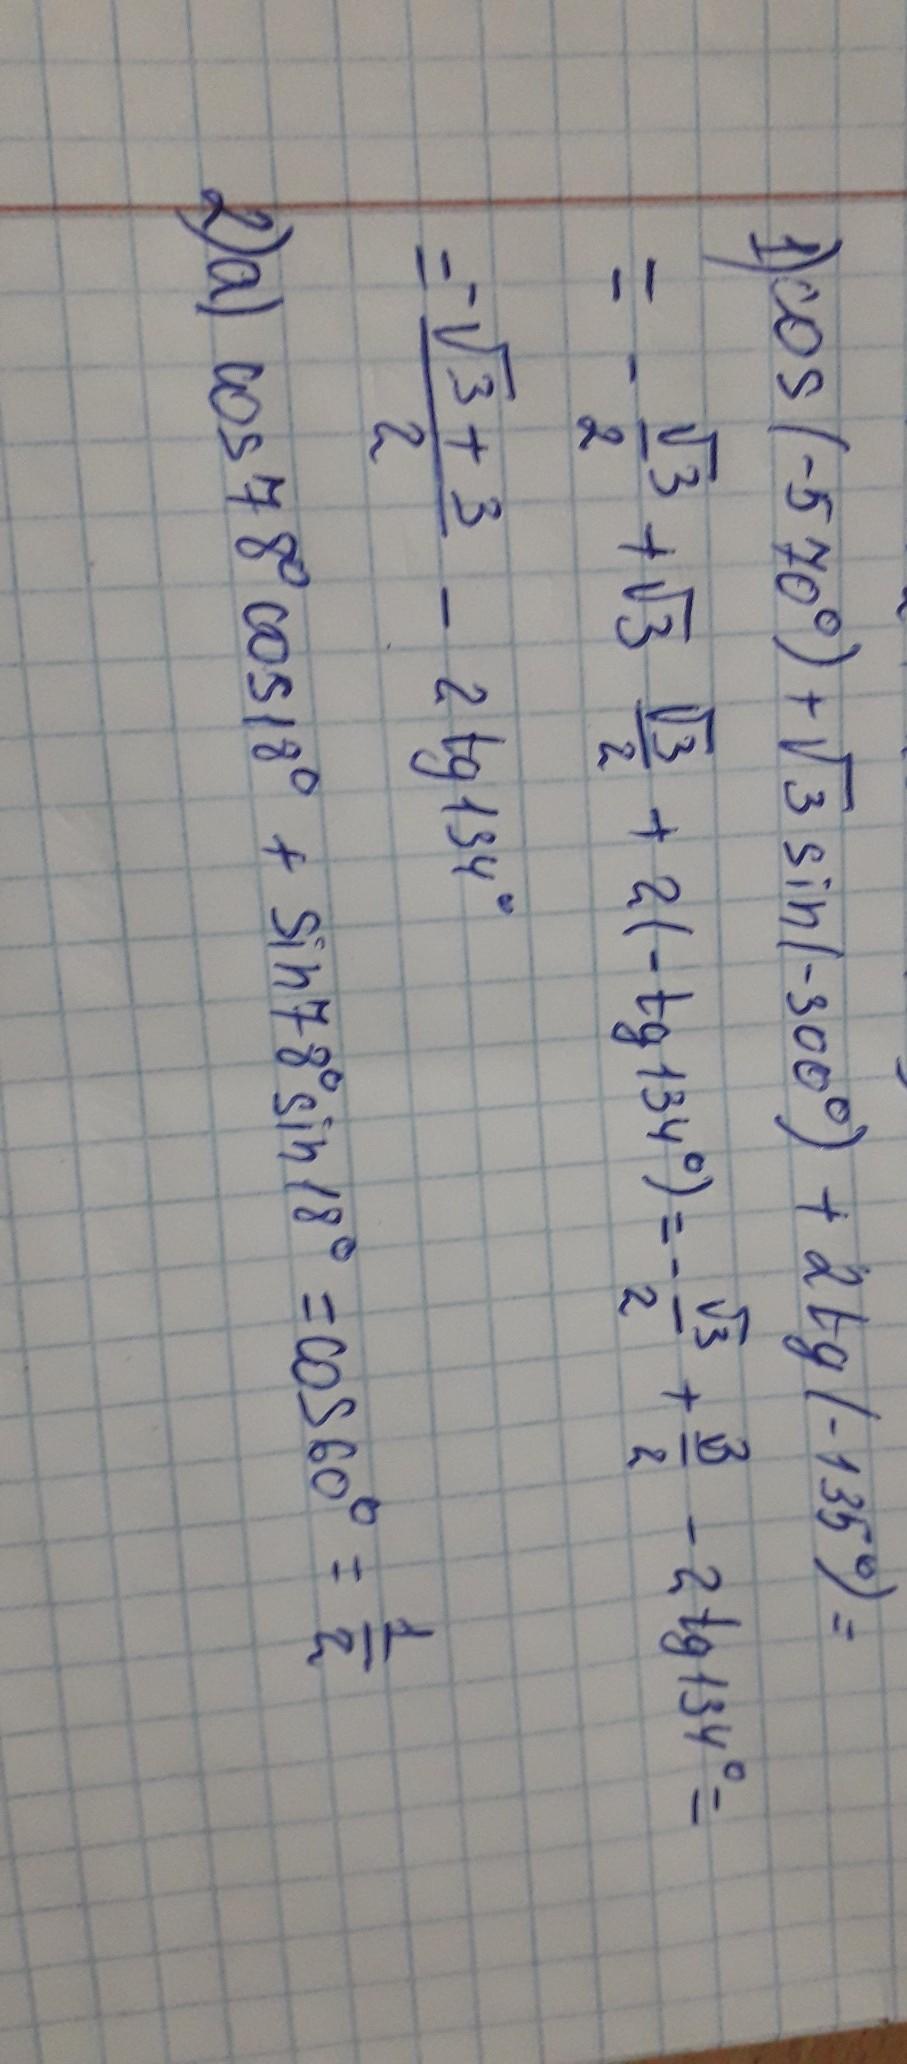 1) cos(-570°) + √3 sin(-300°) + 2tg(-135°) =
= - √3/2 + √3 √3/2 + 2(-tg134°) = - √3/2 + 3/2 - 2tg134° =
= (-√3 + 3)/2 - 2tg134°
2) a) cos78°cos18° + sin78°sin18° = cos60° = 1/2